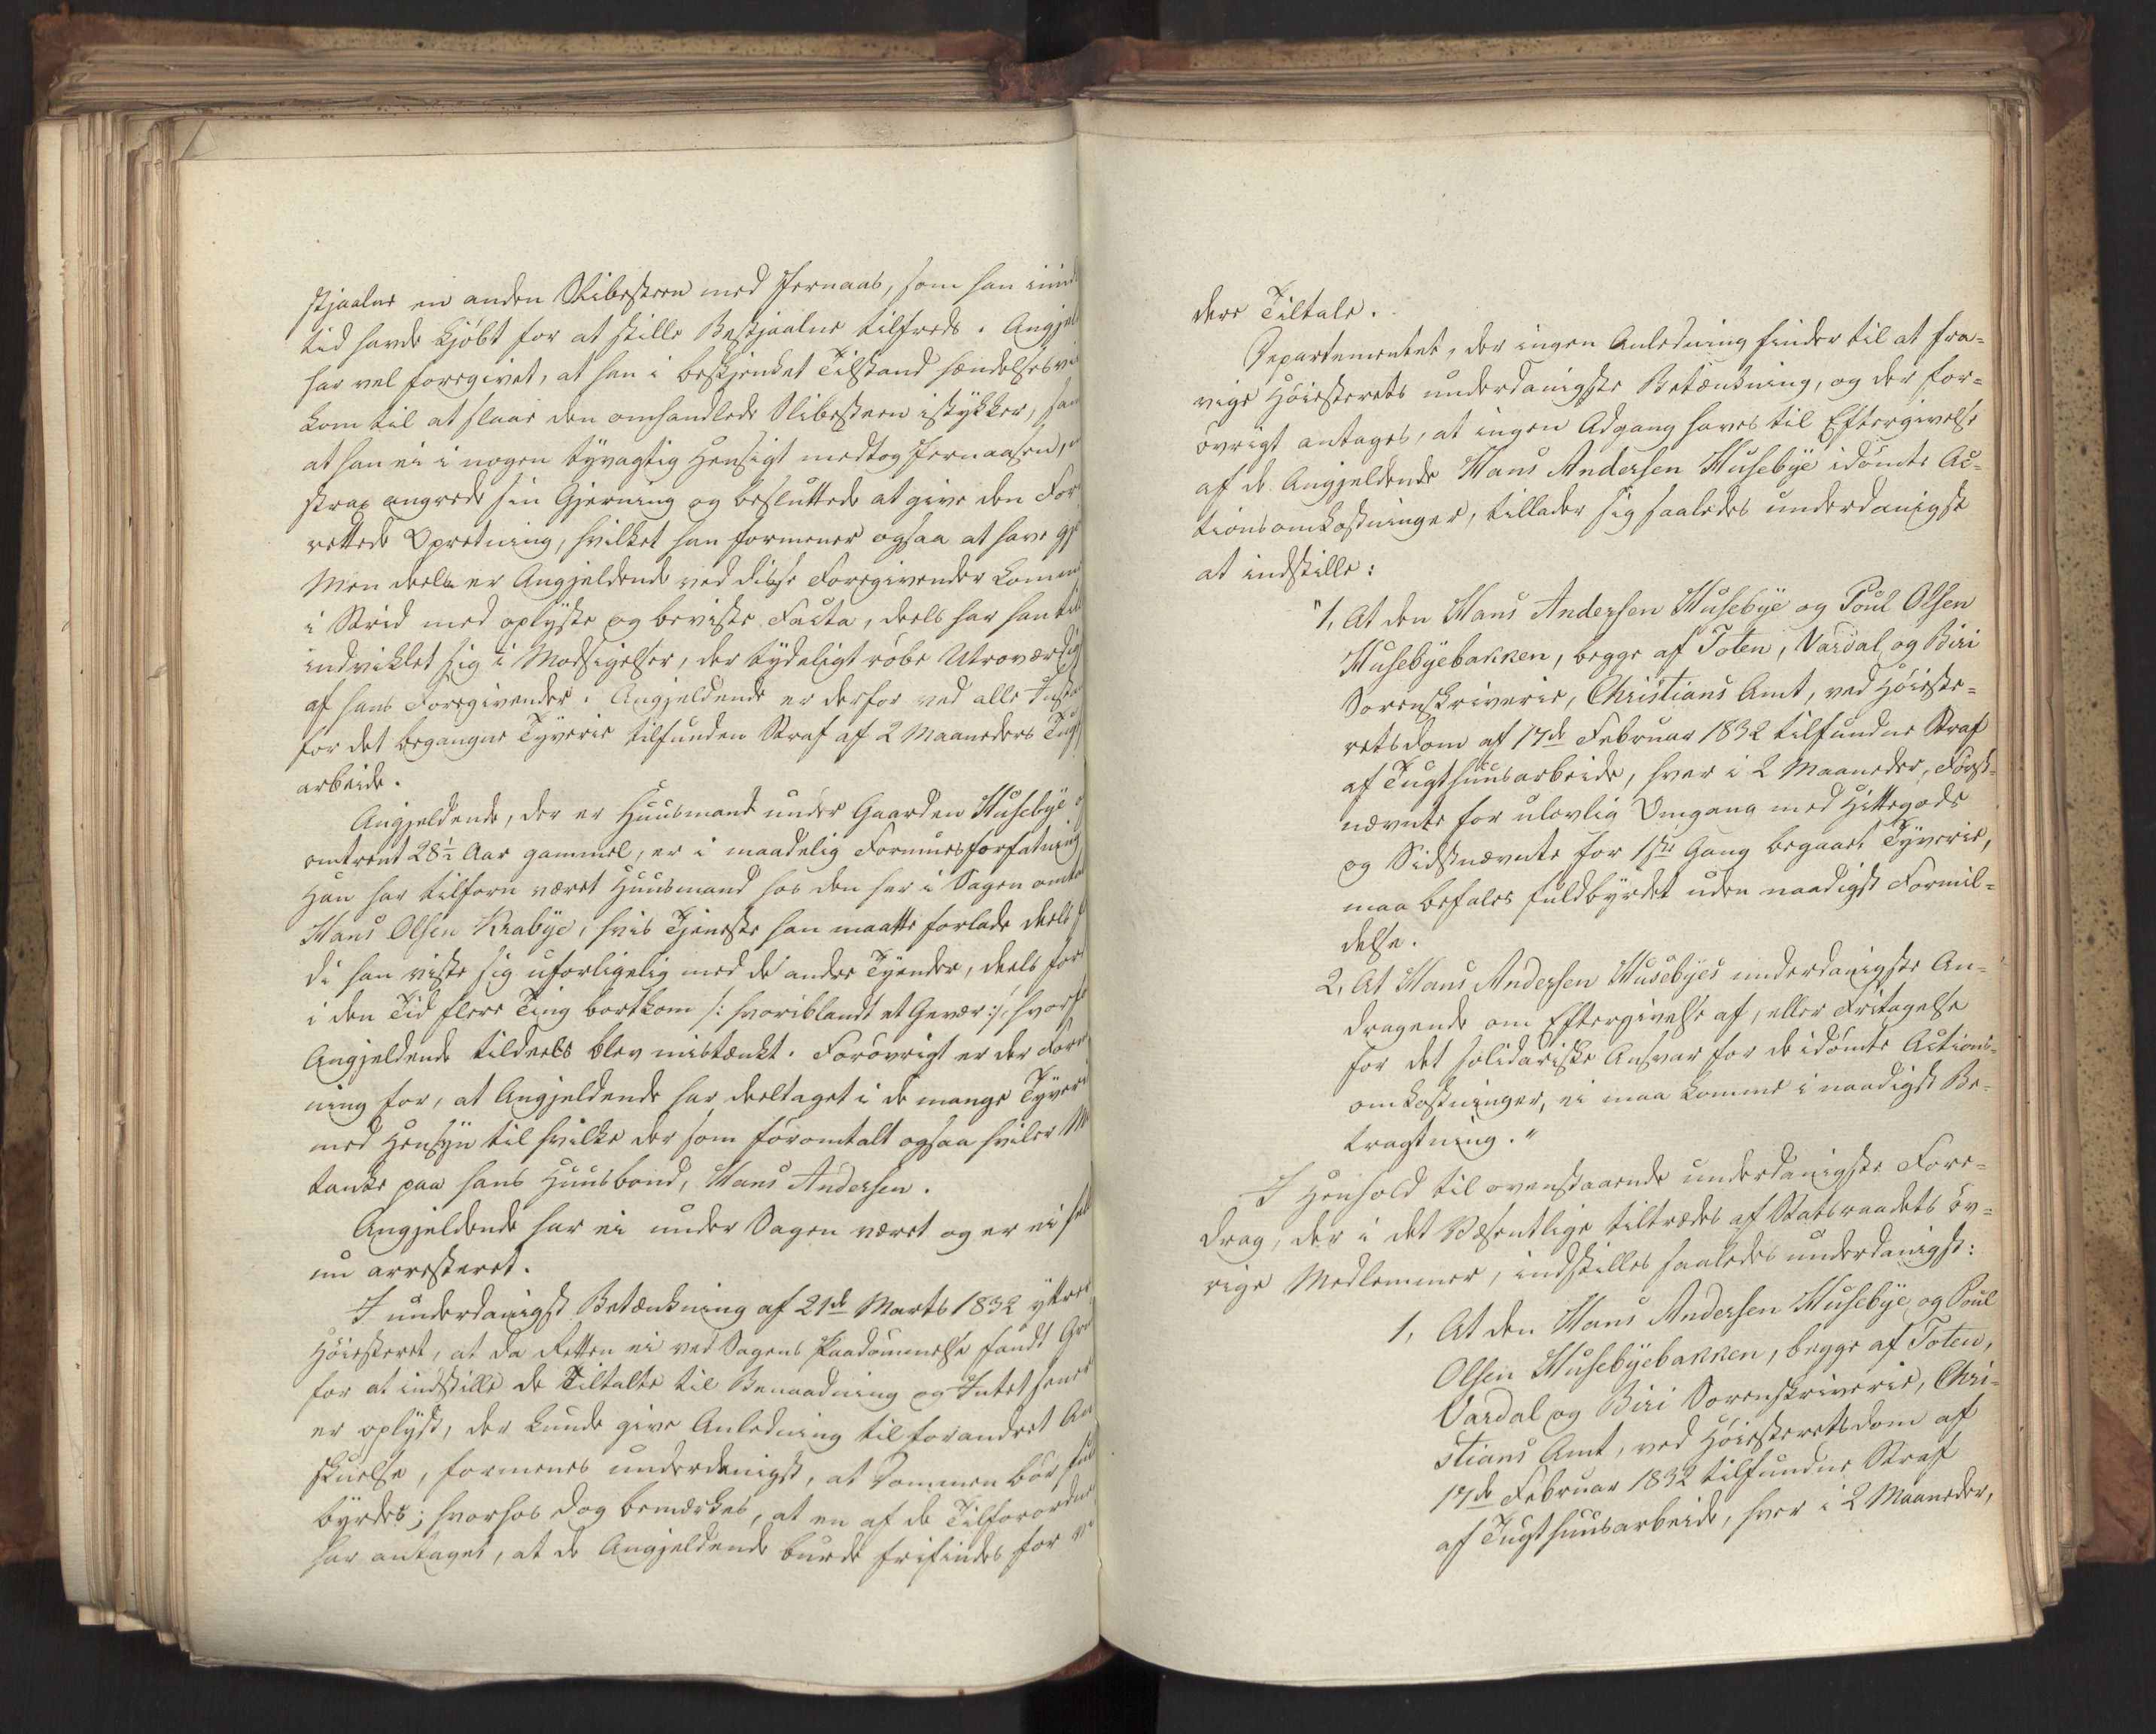 stjaalne en anden Slibesteen med Jernaas, som han imid
tid havde kjøbt for at stille Bestjaalne tilfreds. Angjel
har vel foregivet, at han i beskjenket Tilstand hændelsesvi
kom til at slaae den omhandlede Slibesteen istykker, sam
at han ei i nogen tyvagtig Hensigt medtog Jernaasen,
strax angrede sin Gjerning og besluttede at give den For
rettede Opretning, hvilket han formener ogsaa at have gj
Men deels er Angjeldende ved disse Foregivender komm
i Strid med oplyste og beviste Facta, deels har han til
indviklet sig i Modsigelser, der tydeligt røbe Utroværdig
af hans Foregivender. Angjeldende er derfor ved alle Insta
for det begangne Tyverie tilfunden Straf af 2 Maaneders Tugt
arbeide.
Angjeldende, der er Huusmand under Gaarden Husebye o
omtrent 28½ Aar gammel, er i maadelig Formuesforfatning
Han har tilforn været Huusmand hos den her i Sagen omta
Hans Olsen Krabye, hvis Tjeneste han maatte forlade deels f
di han viste sig uforligelig med de andre Tyender, deels for
i den Tid flere Ting bortkom /: hvoriblandt et Gevær :/ hvorfo
Angjeldende tildeels blev mistænkt. Forøvrigt er der Form
ning for, at Angjeldende har deeltaget i de mange Tyveri
med Hensyn til hvilke der som føromtalt ogsaa hviler Mi
tanke paa hans Huusbond, Hans Andersen.
Angjeldende har ei under Sagen været og er ei hel
nu arresteret.
I underdanigst Betænkning af 21de Marts 1832 yttrer
Høiesteret, at da Retten ei ved Sagens Paadømmelse fandt Gru
for at indstille de Tiltalte til Benaadning og Intet sener
er oplyst, der kunde give Anledning til forandret An
skuelse, formenes underdanigst, at Dommen bør ful
byrdes; hvorhos dog bemærkes, at en af de Tilforordne
har antaget, at de Angjeldende burde frifindes for vi
dere Tiltale.
Departementet, der ingen Anledning finder til at fra-
vige Høiesterets underdanigste Betænkning, og der for-
øvrigt antages, at ingen Adgang haves til Eftergivelse
af de Angjeldende Hans Andersen Husebye idømte Ac-
tionsomkostninger, tillader sig saaledes underdanigst
at indstille:
"1, At den Hans Andersen Husebye og Poul Olsen
Husebyebakken, begge af Toten, Vardal og Biri
Sorenskriverie, Christians Amt, ved Høieste-
retsdom af 17de Februar 1832 tilfundne Straf
af Tugthuusarbeide, hver i 2 Maaneder, Først-
nævnte for ulovlig Omgang med Hittegods
og Sidstnævnte for 1ste Gang begaaet Tyverie,
maa befales fuldbyrdet uden naadigst Formil-
delse.
2, At Hans Andersen Husebyes underdanigste An-
dragende om Eftergivelse af, eller Fritagelse
for det solidariske Ansvar for de idømte Actions-
omkostninger, ei maa komme i naadigst Be-
tragtning."
I Henhold til ovenstaaende underdanigste Fore-
drag, der i det Væsentlige tiltrædes af Statsraadets øv-
rige Medlemmer, indstilles saaledes underdanigst:
1, At den Hans Andersen Husebye og Poul
Olsen Husebyebakken, begge af Toten,
Vardal og Biri Sorenskriverie, Chri-
stians Amt, ved Høiesteretsdom af
17de Februar 1832 tilfundne Straf
af Tugthuusarbeide, hver i 2 Maaneder,